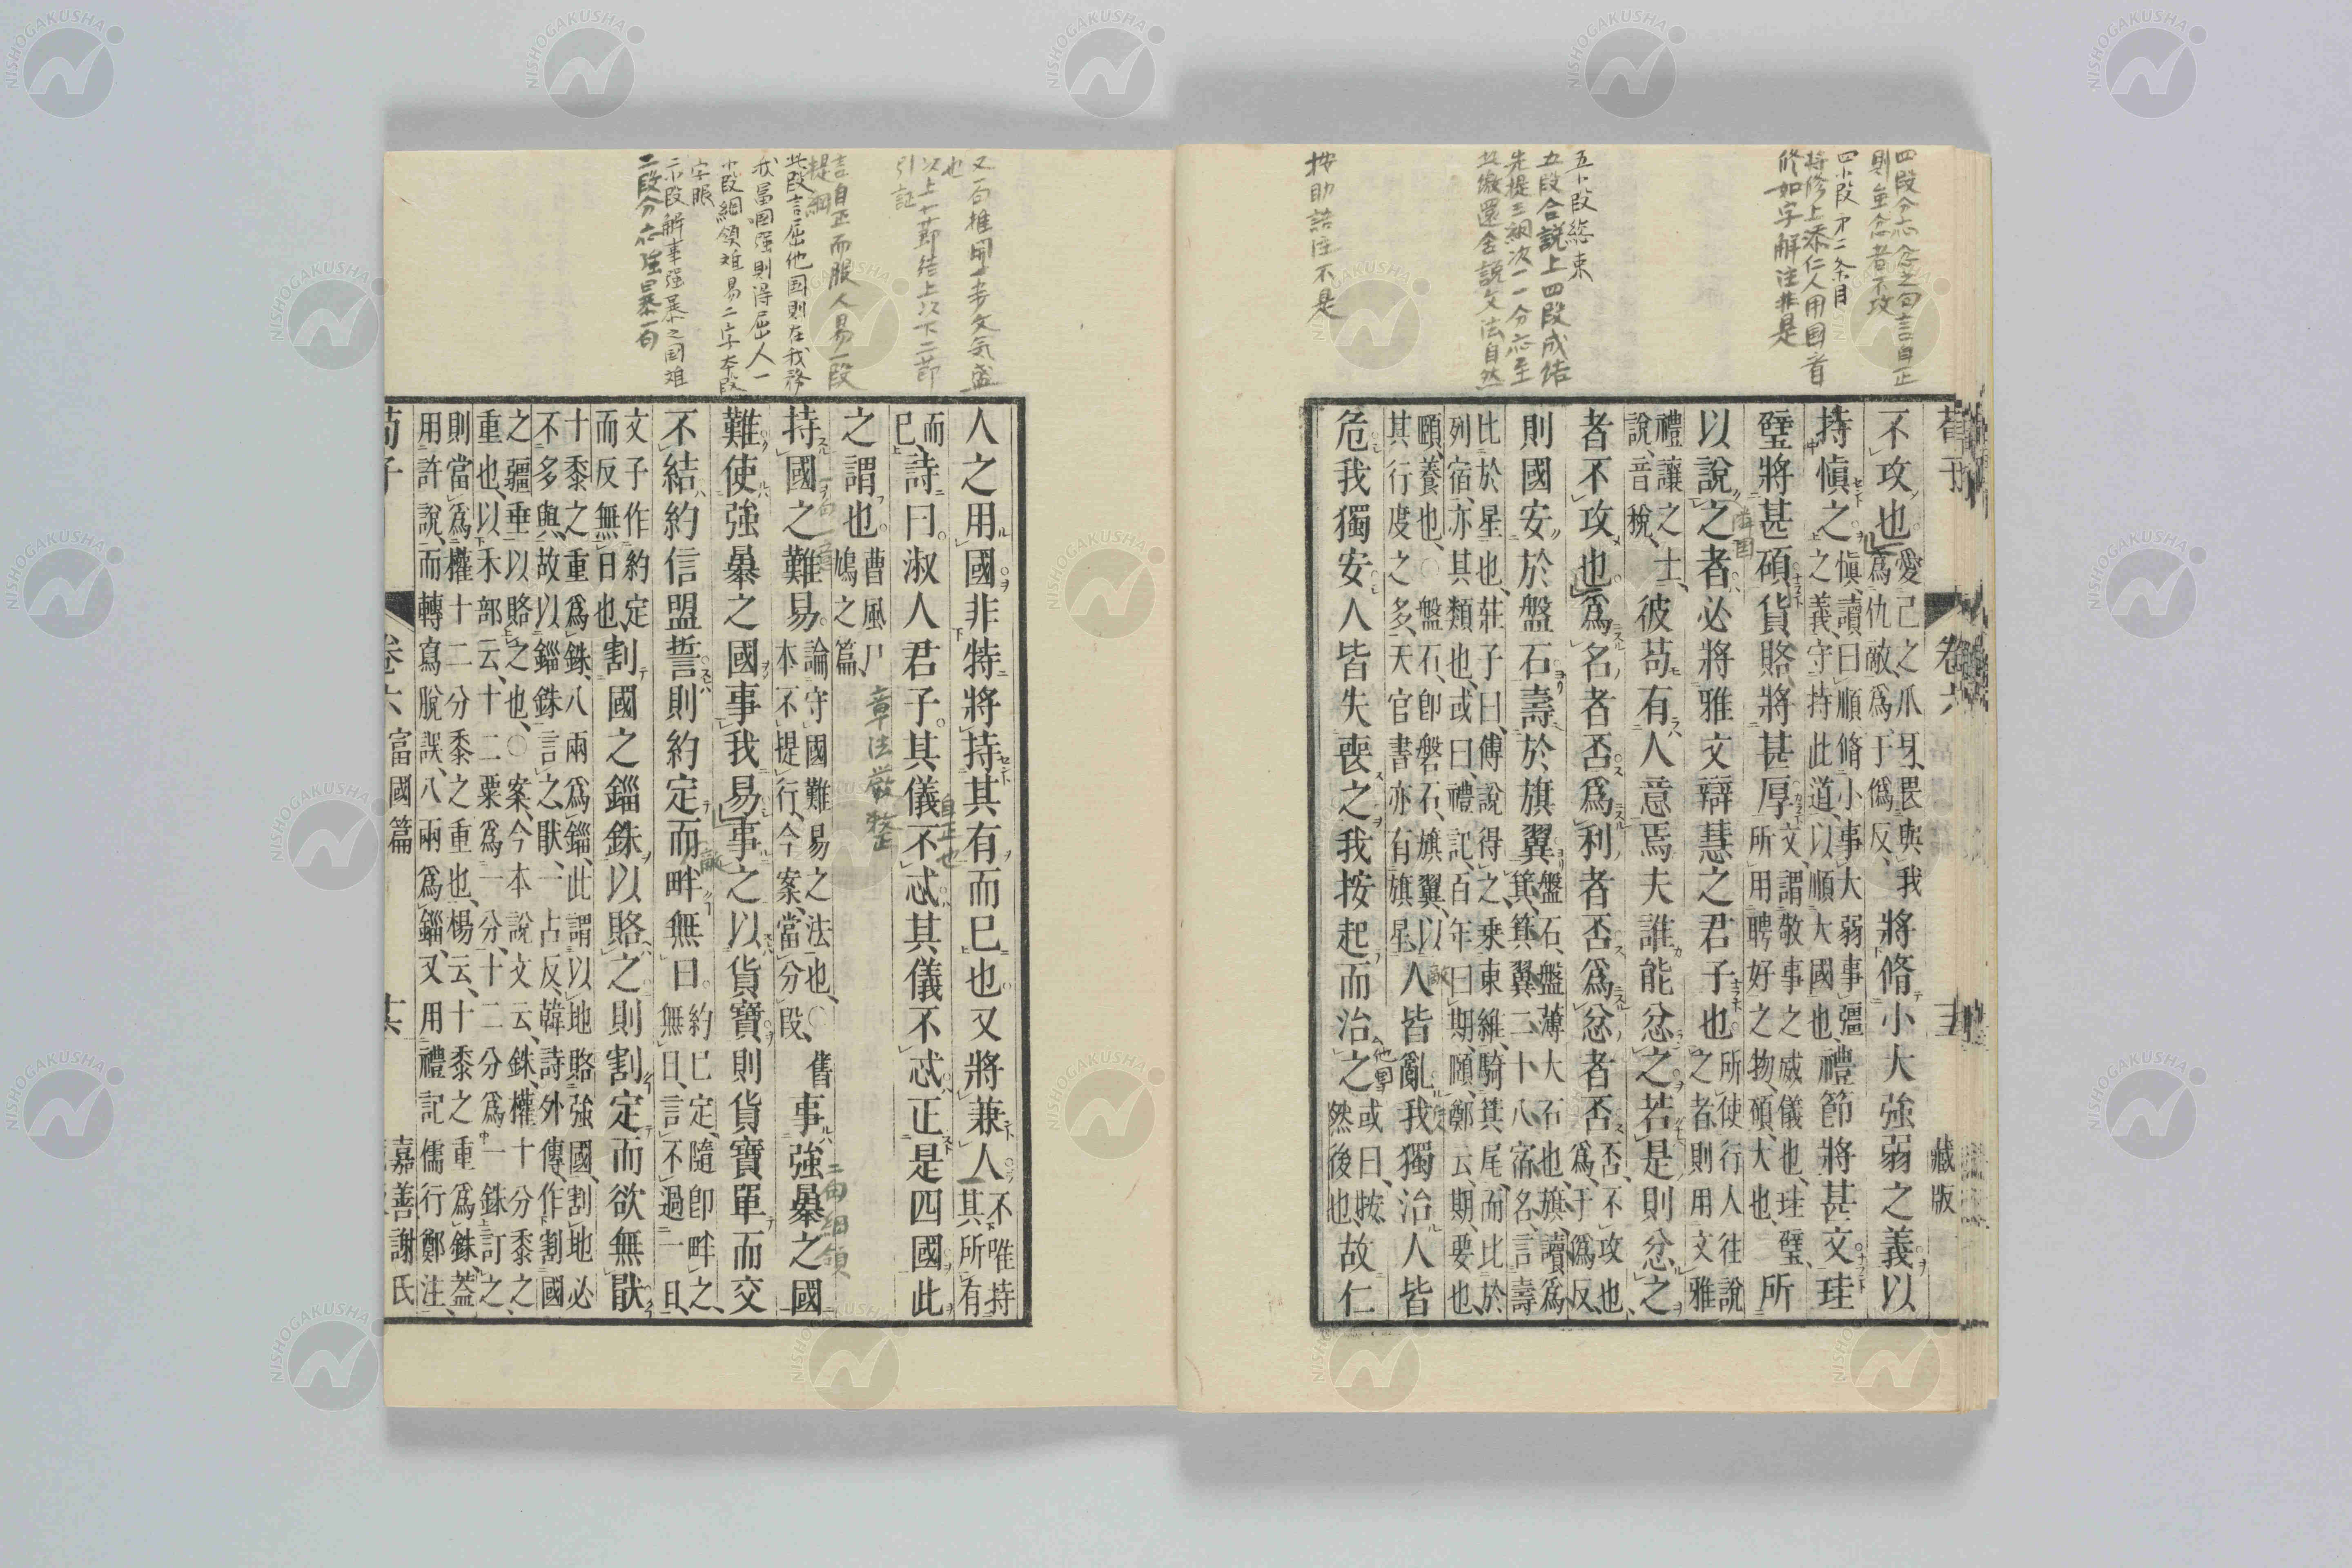 四段分忿忿之句言自正
則至忿者不攻
四小段中二条目
將修上添仁人用國首
修如字解注非是
五小段総束
五段合説上四段成結
先提三綱次一一分応至
此繳還全説文法自然
按助語注不是
荀子
卷六
藏版
不攻也愛己之爪牙畏與我爲仇敵爲于僞反將脩小大強弱之義以
持愼之愼讀曰順脩小事大弱事彊之義守持此道以順大國也禮節將甚文珪
璧將甚碩貨賂將甚厚文謂敬事之威儀也珪璧所用聘好之物碩大也所
以說之者必將雅文辯慧之君子也所使行人往說之者則用文雅
禮讓之士說音稅彼苟有人意焉夫誰能忿之若是則忿之
者不攻也爲名者否爲利者否爲忿者否否不攻也爲于僞反
則國安於盤石壽於旗翼盤石盤薄大石也旗讀爲箕箕翼二十八宿名言壽
比於星也莊子曰傅說得之乘東維騎箕尾而比於列宿亦其類也或曰禮記百年曰期頤鄭云期要也
頤養也○盤石卽磐石旗翼以其行度之多天官書亦有旗星人皆亂我獨治人皆
危我獨安人皆失喪之我按起而治之或曰按然後也故仁
又一句推開一步文気盛
也
以上十節結上以下二節
引証
言自正而服人易一段
提綱
此段言屈他国則在我務
我富国强則得屈人一
小段綱領难易二字本段
字眼
二小段解事强暴之国难
二段分応强暴一句
人之用國非特將持其有而已也又將兼人不唯持其所有
而已詩曰淑人君子其儀不忒其儀不忒正是四國此
之謂也曹風尸鳩之篇
章法嚴整
自正也
持國之難易論守國難易之法也○舊本不提行今案當分段事強暴之國
二句綱領
難使強暴之國事我易事之以貨寶則貨寶單而交
不結約信盟誓則約定而畔無日約已定隨卽畔之無日言不過一日
文子作約定而反無日也割國之錙銖以賂之則割定而欲無猒
十黍之重爲銖八兩爲錙此謂以地賂強國割地必不多與故以錙銖言之猒一占反韓詩外傳作割國
之疆垂以賂之也○案今本說文云銖權十分黍之重也以禾部云十二粟爲一分十二分爲一銖訂之
則當爲權十二分黍之重也楊云十黍之重爲銖蓋用許說而轉寫脫誤八兩爲錙又用禮記儒行鄭注
荀子
卷六
富國篇
嘉善謝氏